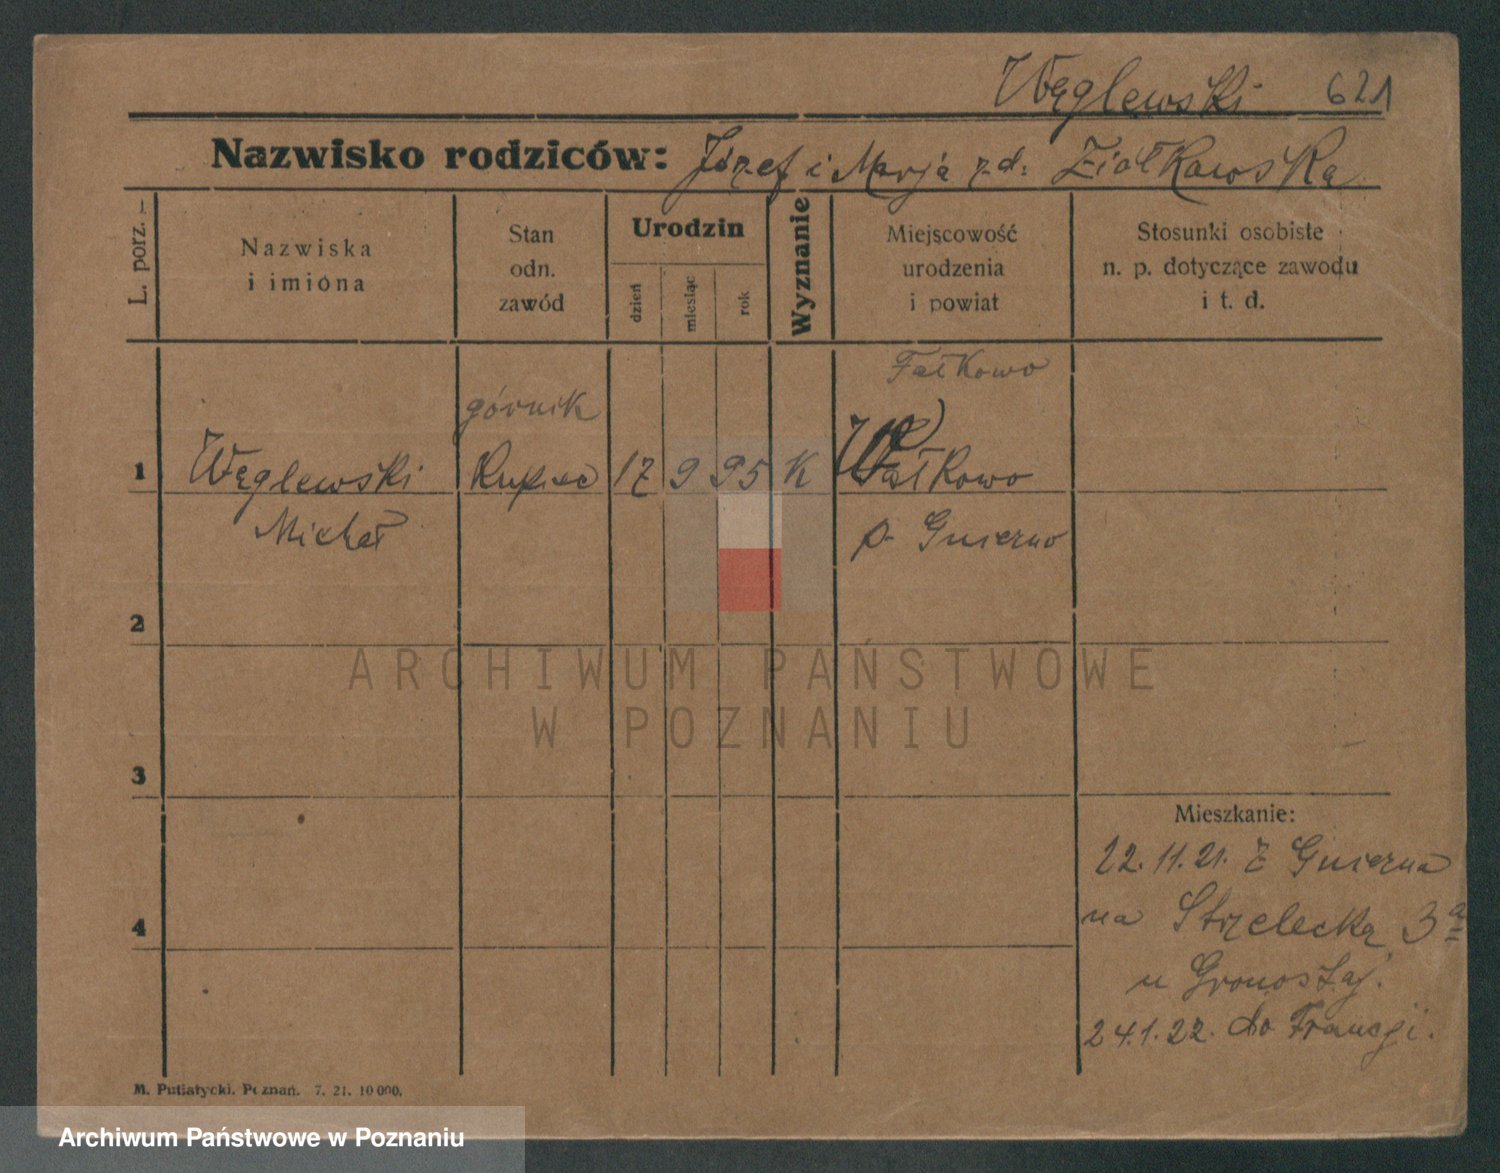 Węglewski 621
Nazwisko rodziców: Józef i Marja z d. Ziółkowska
L. porz.
Nazwiska
i imiona
Stan
odn.
zawód
Urodzin
dzień
miesiąc
rok
Wyznanie
Miejscowość
urodzenia
i powiat
Stosunki osobiste
n. p. dotyczące zawodu
i t. d.
Fałkowo
górnik
1 Węglewski Kupiec 17 9 95 K Wałkowo
Michał p. Gniezno
2
ARCHIWUM PAŃSTWOWE
W POZNANIU
3
Mieszkanie:
22.11.21. z Gniezna
4
na Strzelecką 3a
u Gronostaj.
24.1.22. do Francji.
M. Putiatycki. Poznań. 7. 21. 10 000.
Archiwum Państwowe w Poznaniu